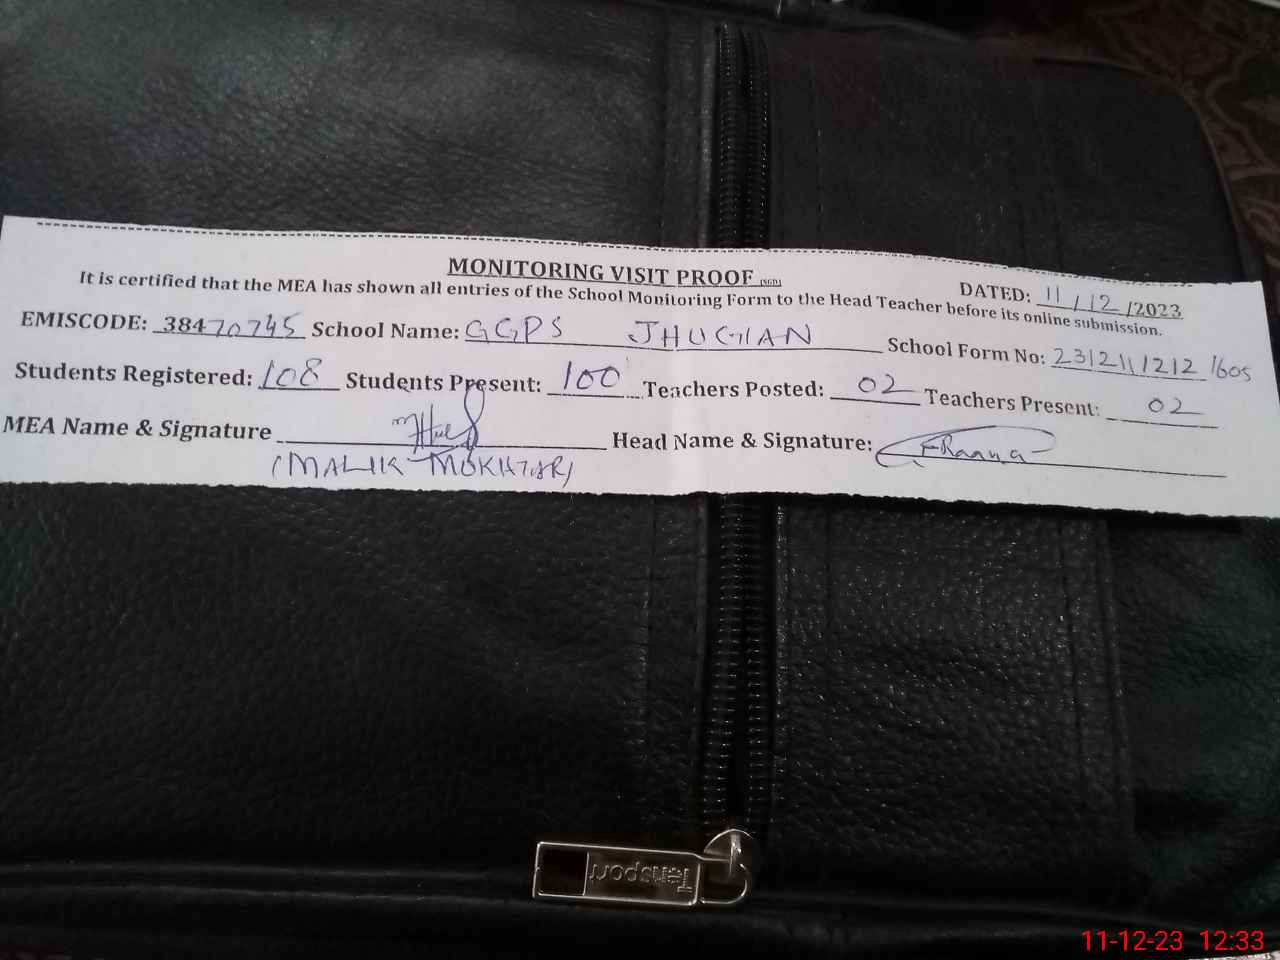 MONITORING VISIT PROOF (SGD)
DATED: 11/12/2023
It is certified that the MEA has shown all entries of the School Monitoring Form to the Head Teacher before its online submission.
EMISCODE: 38470745 School Name: GGPS JHUGIAN School Form No: 23121112121605
Students Registered: 108 Students Present: 100 Teachers Posted: 02 Teachers Present: 02
MEA Name & Signature Head Name & Signature: FRaana
(MALIK MUKHTAR)
Transport
11-12-23 12:33